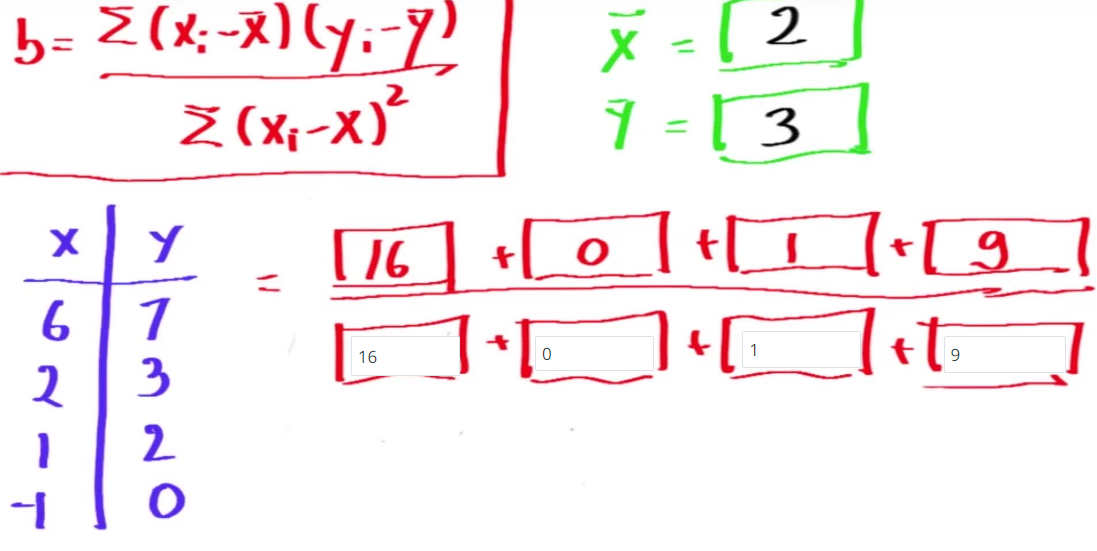 b = Σ(xᵢ-x̄)(yᵢ-ȳ)
Σ(xᵢ-x)²
x̄ = [2]
ȳ = [3]
x | y
6 | 7
2 | 3
1 | 2
-1 | 0
= [16] + [0] + [1] + [9]
[16] + [0] + [1] + [9]